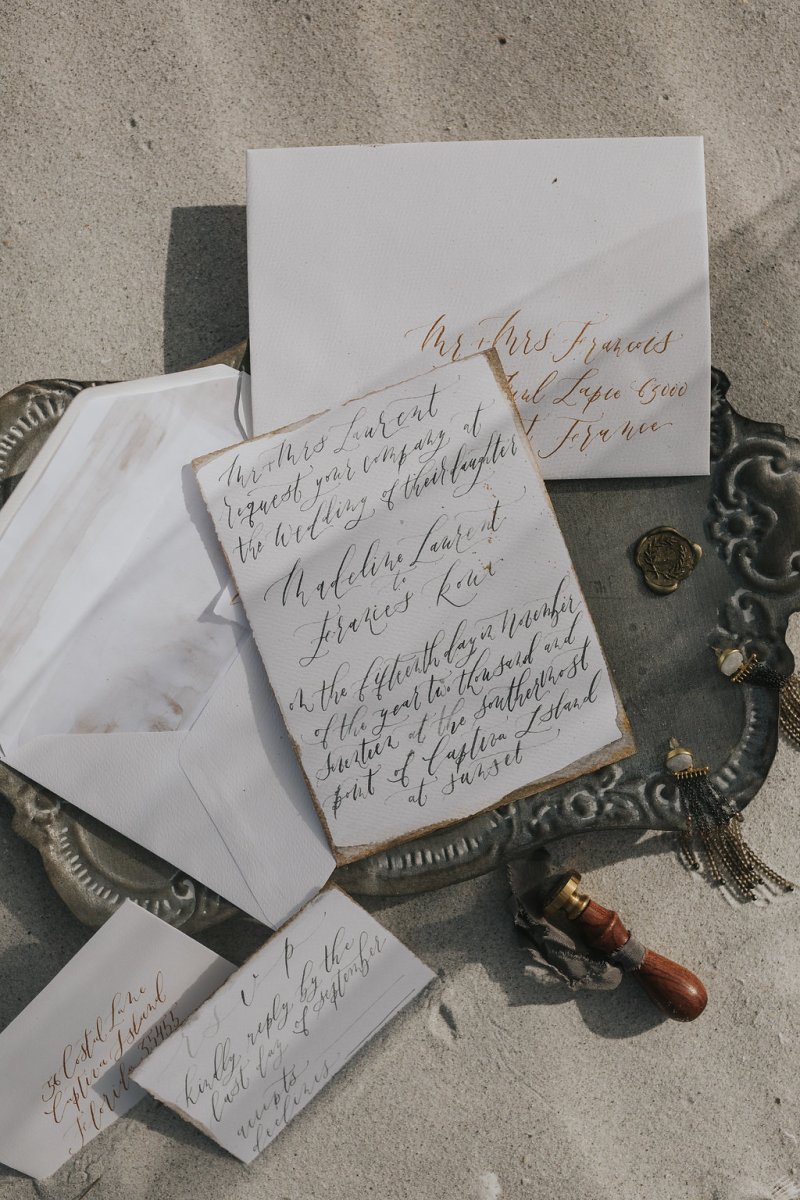 Mr + Mrs Francois
Paul Lapie 63000
France
Mr + Mrs Laurent
request your company at
the wedding of their daughter
Madeline Laurent
to
Frances Kour
on the fifteenth day in November
of the year two thousand and
seventeen at the southernmost
point of Captiva Island
at sunset
r s v p
kindly reply by the
last day of September
accepts
declines
56 Costal Lane
Captiva Island
Florida